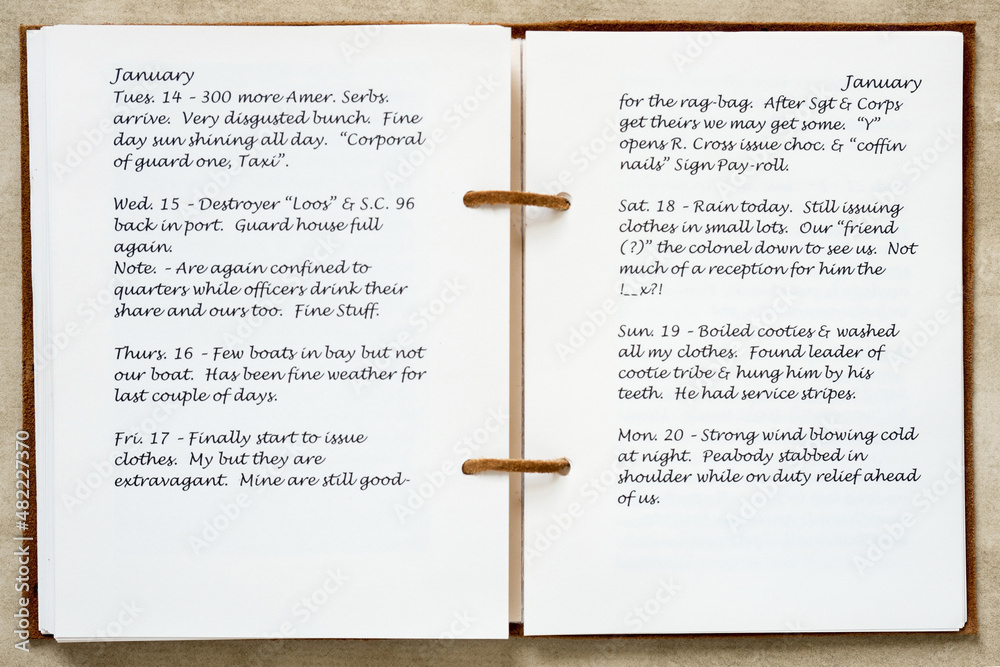 January
Tues. 14 – 300 more Amer. Serbs.
arrive. Very disgusted bunch. Fine
day sun shining all day. “Corporal
of guard one, Taxi”.
Wed. 15 – Destroyer “Loos” & S.C. 96
back in port. Guard house full
again.
Note. – Are again confined to
quarters while officers drink their
share and ours too. Fine Stuff.
Thurs. 16 – Few boats in bay but not
our boat. Has been fine weather for
last couple of days.
Fri. 17 – Finally start to issue
clothes. My but they are
extravagant. Mine are still good-
January
for the rag-bag. After Sgt & Corps
get theirs we may get some. “Y”
opens R. Cross issue choc. & “coffin
nails” Sign Pay-roll.
Sat. 18 – Rain today. Still issuing
clothes in small lots. Our “friend
(?)” the colonel down to see us. Not
much of a reception for him the
!__x?!
Sun. 19 – Boiled cooties & washed
all my clothes. Found leader of
cootie tribe & hung him by his
teeth. He had service stripes.
Mon. 20 – Strong wind blowing cold
at night. Peabody stabbed in
shoulder while on duty relief ahead
of us.
Adobe Stock | #482227370